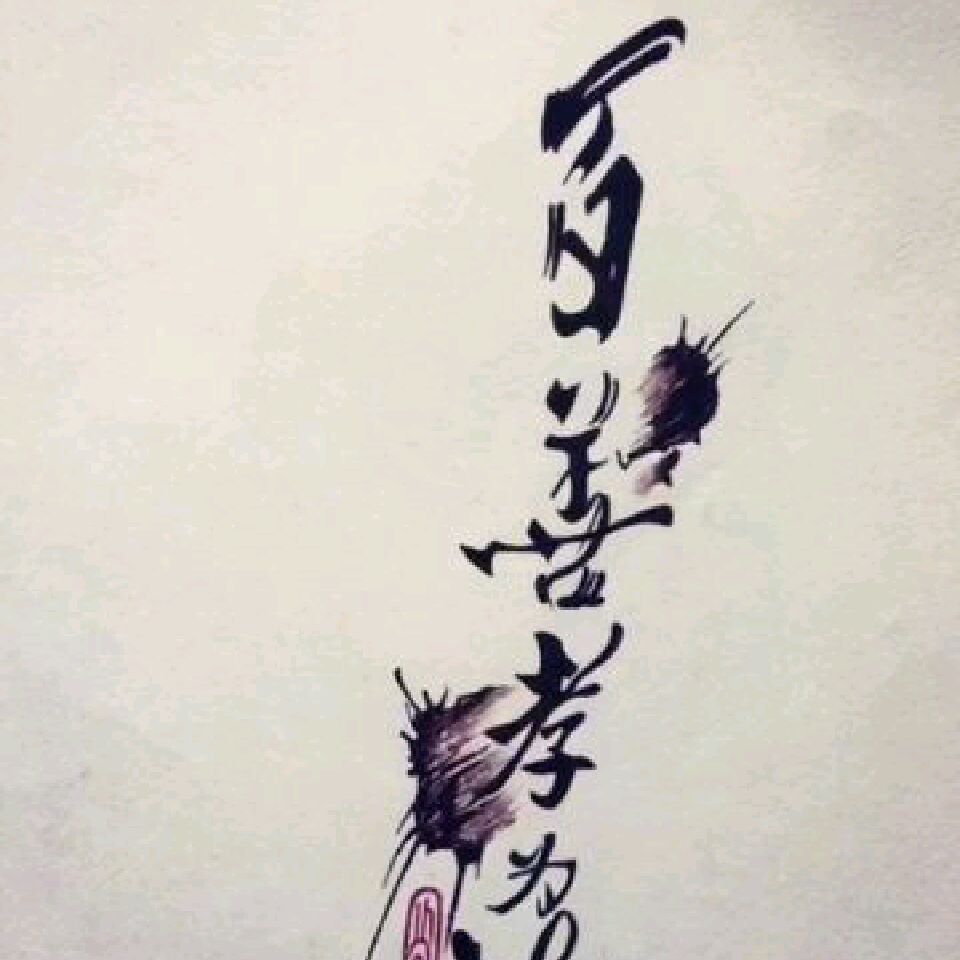 百善孝为